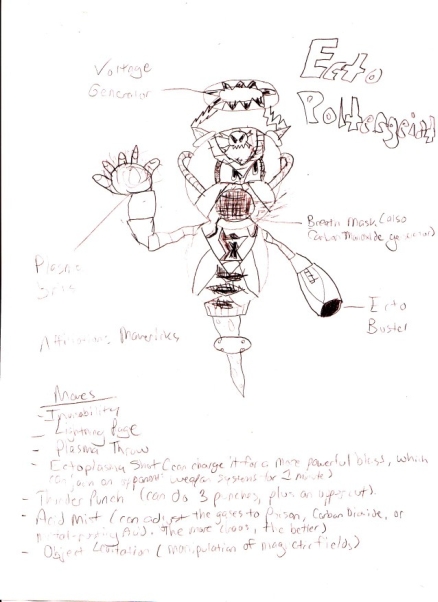 Ecto
Poltergeist
Voltage
Generator
Breath Mask (also
Carbon Monoxide generator)
Plasma
Ecto
Buster
Affiliation: Mavericks
Moves
- Immobility
- Lightning Rage
- Plasma Throw
- Ectoplasma Shot (can charge it for a more powerful blast, which
can jam an opponents weapon systems for 1 minute)
- Thunder Punch (can do 3 punches, plus an uppercut).
- Acid Mist (can adjust the gases to Poison, Carbon Dioxide, or
Acid. The more the better)
- Object Levitation (manipulation of magnetic fields)